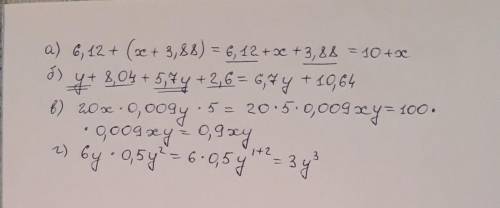 а) 6,12 + (x + 3,88) = 6,12 + x + 3,88 = 10 + x
б) y + 8,04 + 5,7y + 2,6 = 6,7y + 10,64
в) 20x · 0,009y · 5 = 20 · 5 · 0,009xy = 100 ·
· 0,009xy = 0,9xy
г) 6y · 0,5y² = 6 · 0,5y¹⁺² = 3y³